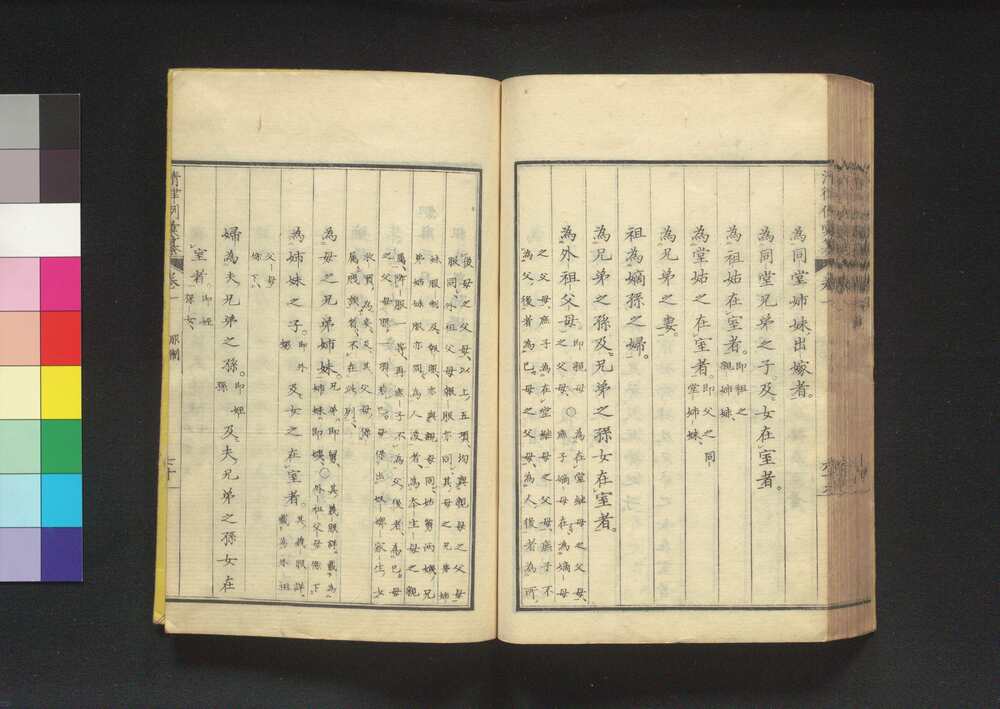 為同堂姉妹出嫁者。
為同堂兄弟之子及女在室者。
為祖姑在室者。即祖之親姉妹、
為堂姑之在室者即父之同堂姉妹、
為兄弟之妻。
祖為嫡孫之婦。
為兄弟之孫及兄弟之孫女在室者。
為外祖父母。即親母之父母、○為在堂継母之父母、庶子嫡母在、為嫡母
之父母庶子為在堂継母之父母、庶子不
為父後者為己母之父母、為人後者為所
後母之父母、以上五項、均與親母之父母
服同、外祖父母報服亦同、其母之兄弟姉
妹服制及報服亦與親母同、姑舅両姨兄
弟姉妹服亦同、為人後者、為本生母之親
属、降服一等、再庶子不為父後者、為己母
之父母服
為母之兄弟姉妹兄弟即舅、姉妹即姨、○其義服詳、載為外祖父母條下、
為姉妹之子。即外甥及女之在室者。其義服詳、載為外祖父母條下、
婦為夫兄弟之孫。即姪孫及夫兄弟之孫女在
室者即姪孫女、
卷一
七十一